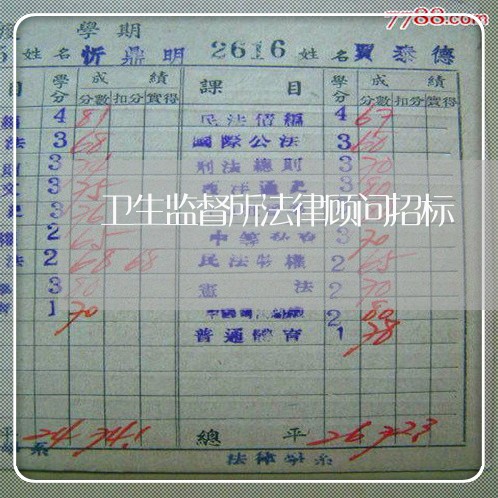 7788.com
學期
姓名 忻鼎明 2616 姓名 賈泰德
目 學分 成績 課目 學分 成績
分數 扣分 實得 分數 扣分 實得
4 81 民法債編 4 67
法 3 68 國際公法 3 60
3 刑法總則 3 70
3 75 3 80
卫生监督所法律顾问招标
2 65 3 70
法 2 68 68 民法物權 2 65
3 80 憲法 2 70
1 70 2 80
普通體育 1 78
平 24 74.1 總平 26 72.3
系 法律學系